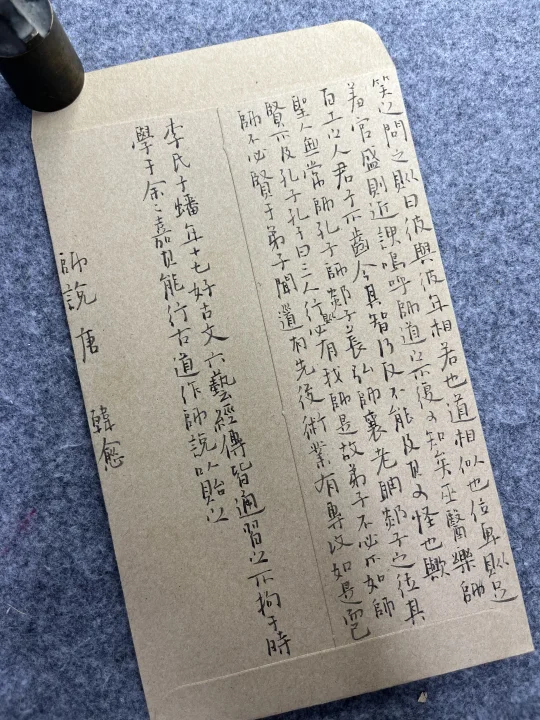 笑之問之則曰彼與彼年相若也道相似也位卑則足
羞官盛則近諛嗚呼師道之不復可知矣巫醫樂師
百工之人君子不齒今其智乃反不能及其可怪也歟
聖人無常師孔子師郯子萇弘師襄老聃郯子之徒其
賢不及孔子孔子曰三人行則必有我師是故弟子不必不如師
師不必賢于弟子聞道有先後術業有專攻如是而已
李氏子蟠年十七好古文六藝經傳皆通習之不拘于時
學于余〻嘉其能行古道作師說以貽之
師說 唐 韓愈